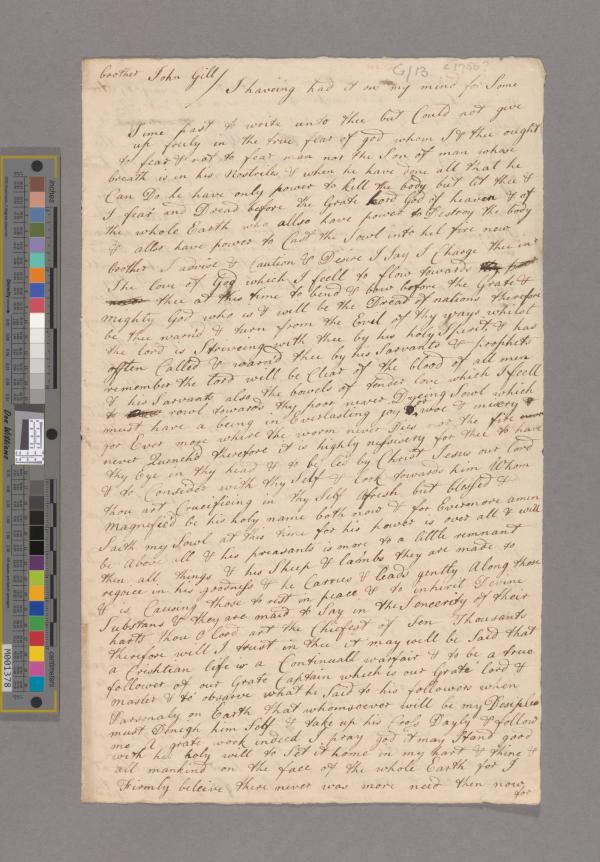 G/13 c1756?
brother John Gill / I haveing had it on my mind for Some
Time past to write unto thee but Could not give
up freely in the true fear of god whom I & thee ought
to fear & not to fear man nor the Son of man whose
breath is in his Nostrells & when he have done all that he
Can Do he have only power to kill the body but let thee &
I fear and Dread before the Grate Lord God of heaven & of
the whole Earth who allso have power to Destroy the body
& allso have power to Cast the Sowl into hel fire now
brother I advise & Caution & Desire I Say I Charge thee in
The love of God which I feell to flow towards
thee at this time to bend & bow before the Grate &
mighty God who is & will be the Dread of nations therefore
be thee warnd & turn from the Evil of thy ways whilst
the lord is Striveing with thee by his holy Spirit & has
offten Called & warnd thee by his Sarvants & prophets
remember the lord will be Clear of the blood of all men
& his Sarvants also the bowels of tender love which I feell
to rowl towards thy poor never Dyeing Sowl which
must have a being in Everlasting joy woe & misery
for Ever more where the worm never Dies nor the fire
never Quenchd therefore it is highly nessesery for thee to have
thy Eye in thy head & to be led by Christ Jesus our lord
& to Consider with thy Self & look towards him Whom
thou art Crucifieing in thy Self afresh but blessed &
Magnified be his holy name both now & for Evermore amen
Saith my Sowl at this time for his power is over all & will
be Above all & his preasants is more to a little remnant
then all things & his Sheep & lambs they are made to
rejoice in his goodness & he Carries & leads gently Along those
& is Causing those to rest in peace & to inherit Devine
Substans & they are maid to Say in the Sencerity of their
harts thou O lord art the Chiefest of Ten Thousants
therefore will I trust in thee it may well be Said that
a Crishtian life is a Continuall warfair & to be a true
follower of our Grate Captain which is our Grate lord &
master & to observe what he Said to his followers when
Parsonaly on Earth that whomsoever will be my Desiples
must Deneigh him Self & take up his Cross Dayly & follow
me A grate work indeed I pray god it may Stand good
with his holy will to Set it home in my hart & thine &
all mankind on the face of the whole Earth for I
Firmly beleive there never was more need then now
for
inches
centimeters
Don Williams
M001378